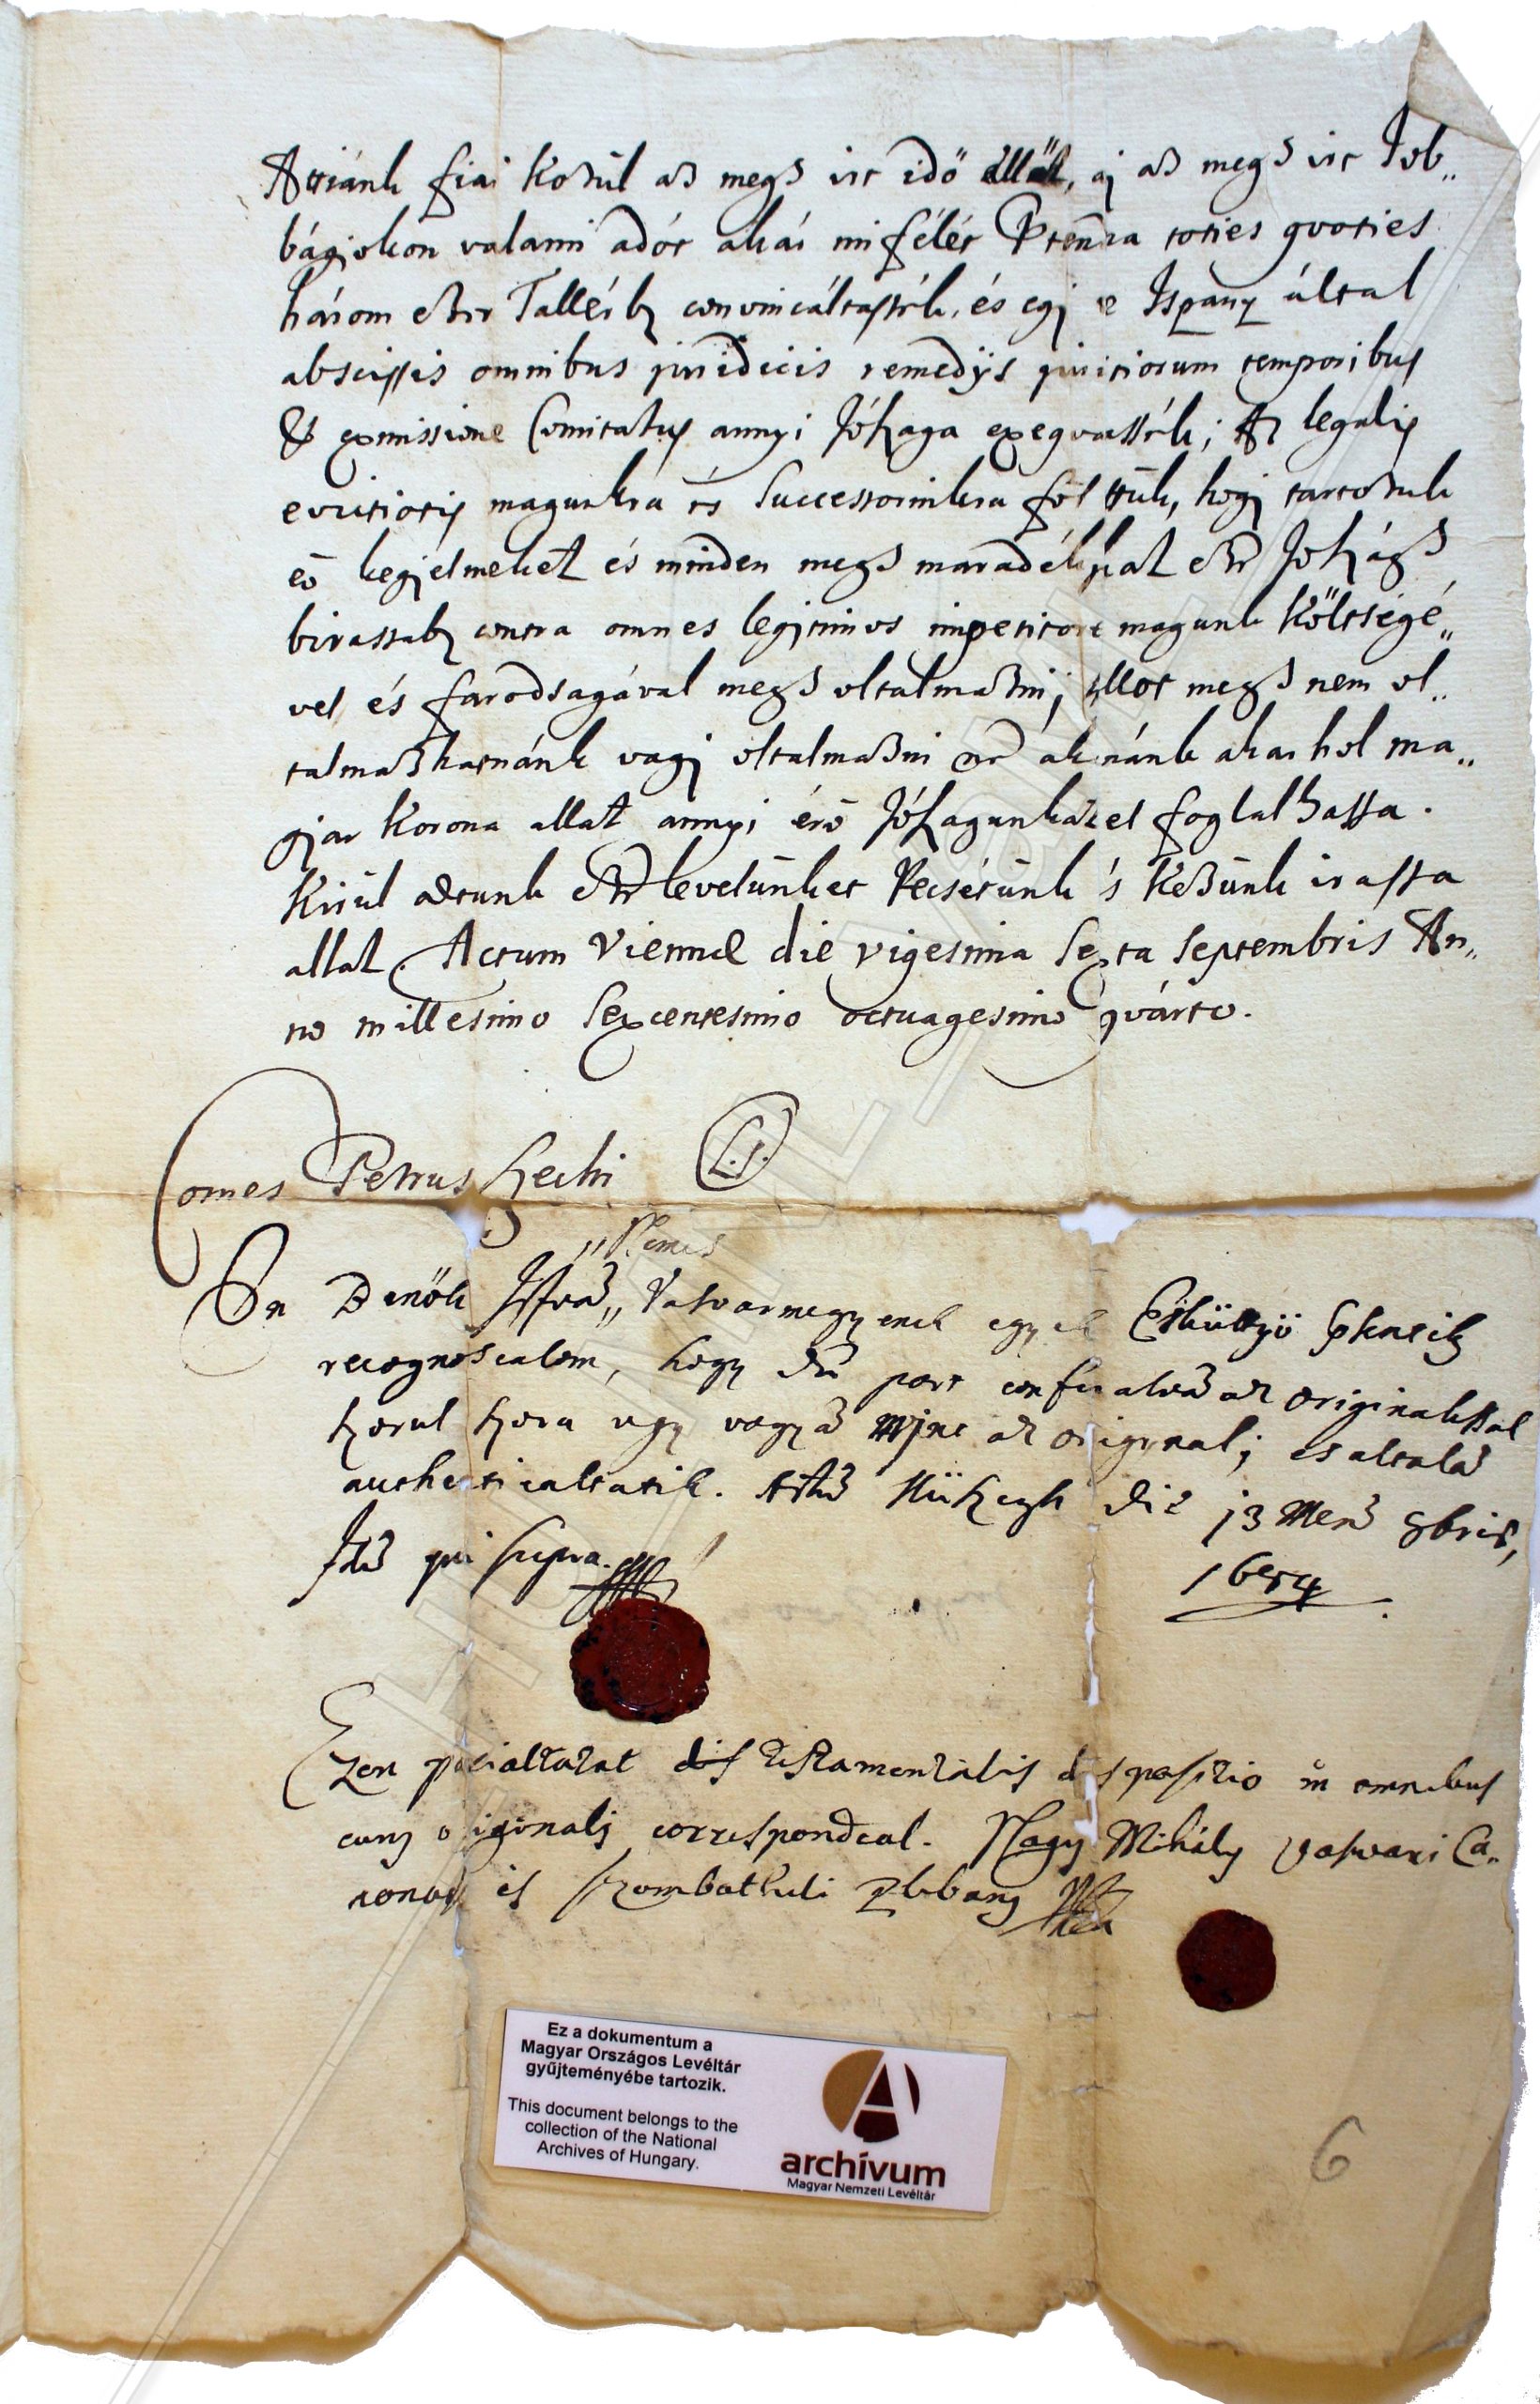 Attiánk fiai közül az megh irt idő által, aj az megh irt Job„
bágiokon valami adót akár mifélét toties qvoties
három ezer Tallérbȝ convincáltassék, és egj v Ispány által
abscissis omnibus juridicis remedÿs quitiorum temporibus
& exmissione Comitatus annyi Jószaga exeqvassék; Az legalis
evictiotis magunkra és Successorinkra föl , hogj tartozunk
eö kegjelmeket és minden megh maradékjhat ezen Joszágh
birassabȝ contra omnes legitimos impetitores magunk Költségé„
vel és farodsagával megh oltalmazni; megh nem ol„
talmazhatnánk vagj oltalmazni ne aknánk akarhol ma„
gjar Korona allat annyi érö Jószagunkat el foglalhassa.
Kirül adtunk ezen levelünket Pecsétünk 's Kezünk irassa
allat. Actum Viennæ die vigesima Sexta Septembris An„
no millesimo Sexcentesimo octuagesimo qvárto.
Comes Petrus Szechi L.S.
„Nemes
En Benök Istvā„ Vasvarmegyenek egyik Eskütt
recognoscalom, hogy part conferalvā az originalissal
szorul szora ugy vagyō mjnt az originalj es altalā
authenticaltatik. Kűszegh die 13 Mens 8bris,
Idē qui supra. 1684
Ezen pariáltatat dis testamentalis dispositio in omnibus
cum originalj correspondeal. Nagy Mihály Vasvari Ca„
nonok és szombatheli Plebany
Ez a dokumentum a
Magyar Országos Levéltár
gyűjteményébe tartozik.
This document belongs to the
collection of the National
Archives of Hungary.
archívum
Magyar Nemzeti Levéltár
6